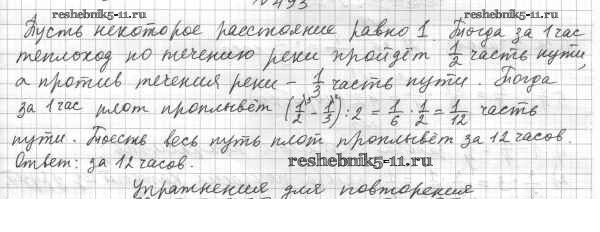 reshebnik5-11.ru № 493 reshebnik5-11.ru
Пусть некоторое расстояние равно 1. Тогда за 1 час
теплоход по течению реки пройдёт 1/2 часть пути,
а против течения реки – 1/3 часть пути. Тогда
за 1 час плот проплывёт (1/2 - 1/3) : 2 = 1/6 · 1/2 = 1/12 часть
пути. Тоесть весь путь плот проплывёт за 12 часов.
Ответ: за 12 часов. reshebnik5-11.ru
Упражнения для повторения